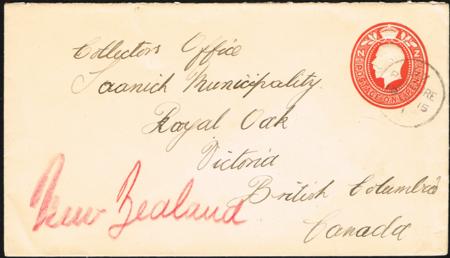 Collectors Office
Saanich Municipality
Royal Oak
Victoria
British Columbia
Canada
New Zealand
N.Z. POSTAGE ONE PENNY
RE
15